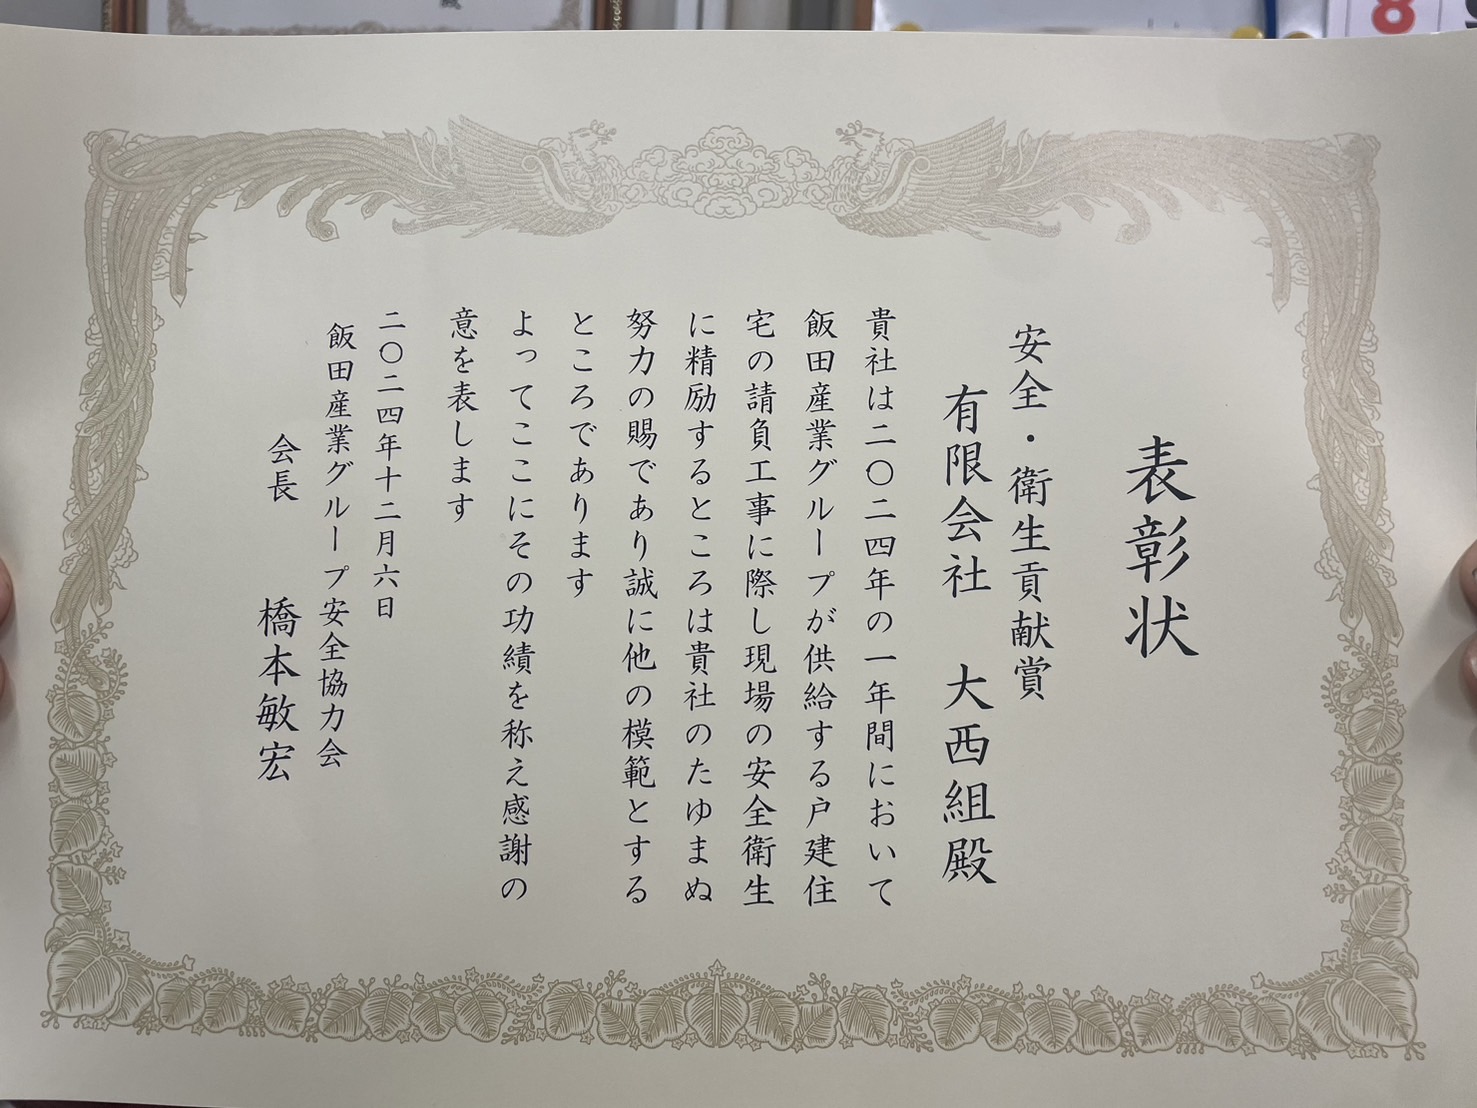 表彰状
安全・衛生貢献賞
有限会社 大西組殿
貴社は二〇二四年の一年間において
飯田産業グループが供給する戸建住
宅の請負工事に際し現場の安全衛生
に精励するところは貴社のたゆまぬ
努力の賜であり誠に他の模範とする
ところであります
よってここにその功績を称え感謝の
意を表します
二〇二四年十二月六日
飯田産業グループ安全協力会
会長 橋本敏宏
8